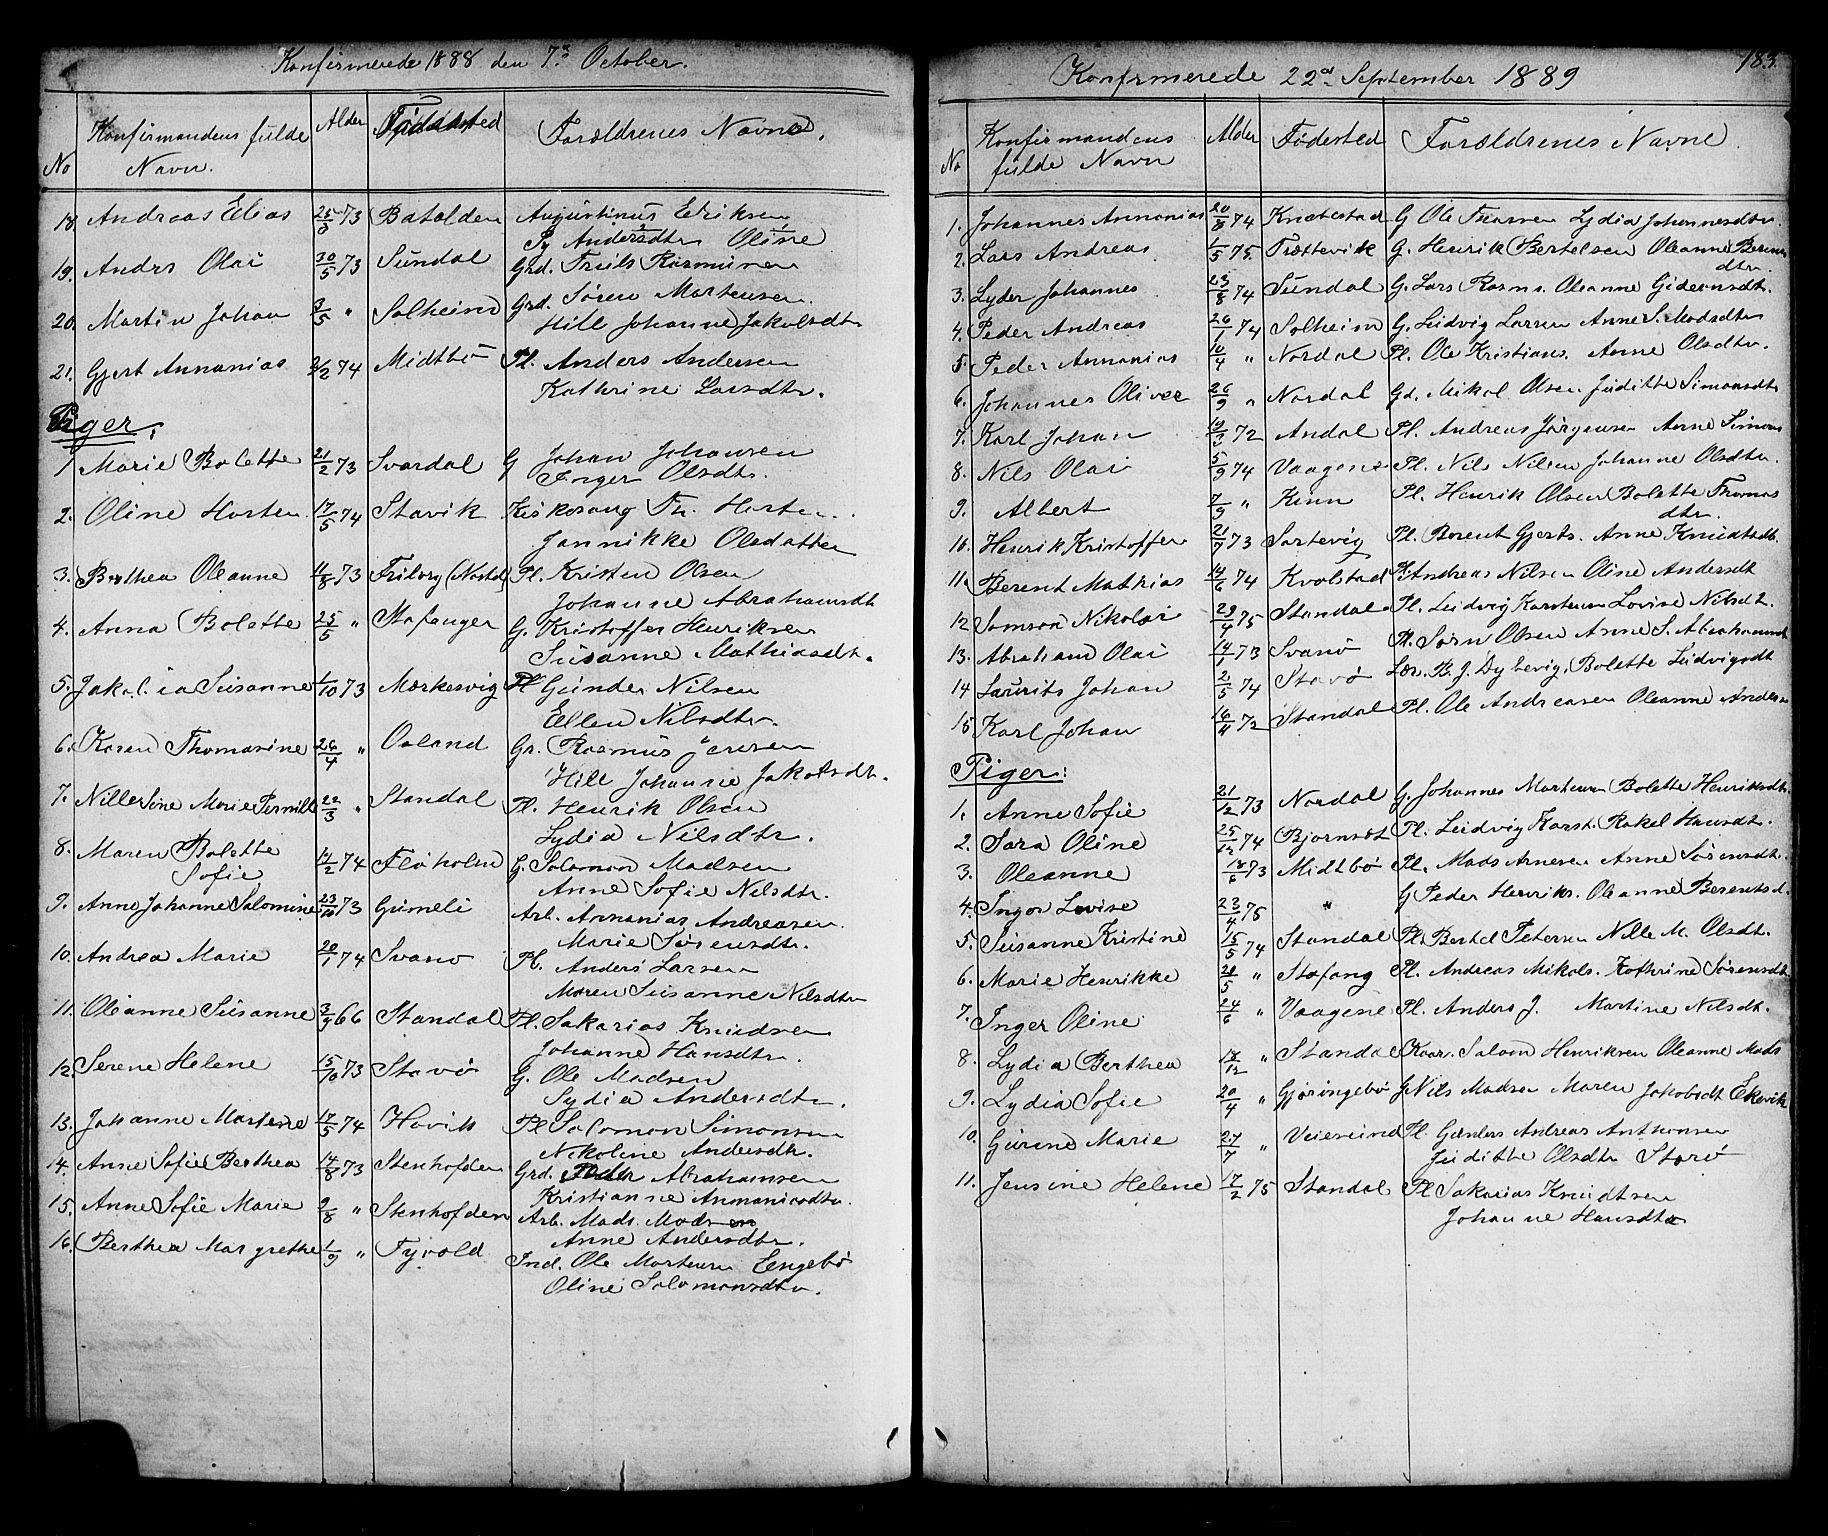 Konfirmerede 1888 den 7de October.
No Konfirmandens fulde Navn. Alder Fødested Forældrenes Navne.
18. Andreas Elias 25/3 73 Batalden Augustinus Eriksen
Sy Andersdtr Oline
19. Andrs Olai 30/5 73 Sundal Grd. Truls Rasmusen
20. Martin Johan 3/5 " Solheim Grd. Søren Martensen.
Hill Johanne Jakobsdtr
21. Gjert Annanias 2/2 74 Midtbø Pl. Anders Andersen
Kathrine Larsdtr.
Piger.
1. Marie Bolette 21/2 73 Svardal G Johan Johansen
Inger Olsdtr.
2. Oline Horten 17/5 74 Stavik Kirkesang Th. Horten.
Jannikke Olsdatter
3. Berthea Oleanne 11/8 73 Friborg (Nordal) Pl. Kristen Olsen
Johanne Abrahamsdtr
4. Anna Bolette 25/5 " Stafanger G. Kristoffer Henriksen
Susanne Mathiasdtr.
5. Jakobia Susanne 1/10 73 Mærkesvig Pl Gunder Nilsen
Ellen Nilsdtr.
6. Karen Thomasine 26/4 " Osland Gr. Rasmus Jensen
Hill Johanne Jakobsdtr.
7. Nille Sine Marie Pernille 22/3 " Standal Pl. Henrik Olsen
Lydia Nilsdtr.
8. Maren Bolette 14/2 74 Fløholm G. Salomon Madsen
Sofie Anne Sofie Nilsdtr.
9. Anne Johanne Salomine 23/10 73 Gumeli Arb. Annanias Andreasen.
Marie Sørensdtr.
10. Andrea Marie 20/1 74 Svanø Pl. Anders Larsen
Maren Susanne Nilsdtr
11. Oleanne Susanne 3/9 66 Standal Pl. Sakarias Knudsen
Johanne Hansdtr.
12. Serene Helene 15/10 73 Stavø G. Ole Madsen
Lydia Andersdtr.
13. Johanne Martine 17/5 74 Hovik Pl Salomon Simonsen
Nikoline Andersdtr.
14. Anne Sofie Berthea 14/8 73 Stenhofden Grd. Peder Abrahamsen
Kristianne Annaniasdtr.
15. Anne Sofie Marie 9/8 " Stenhofden Arb. Mads. Madsen
Anne Andersdtr.
16. Berthea Margrethe 1/9 " Tyvold Ind. Ole Martensen Engebø
Oline Salomonsdtr.
183.
Konfirmerede 22de September 1889
No Konfirmandens fulde Navn Alder Fødested Forældrenes Navne.
1. Johannes Annanias 20/8 74 Knætestad G Ole Thorsen Lydia Johannesdtr.
2. Lars Andreas 1/5 75. Trættevik G. Henrik Bertelsen Oleanne Berents
dtr.
3. Lyder Johannes 23/8 74 Sundal G. Lars Rasms. Oleanne Gideonsdtr.
4. Peder Andreas 26/1 74 Solheim G. Ludvig Larsen Anne S. Madsdtr
5. Peder Annanias 10/4 " Nordal Pl. Ole Kristians. Anne Olsdtr.
6. Johannes Oliver 26/9 " Nordal Gd. Mikal Olsen Juditte Simonsdtr
7. Karl Johan 19/3 72 Andal Pl. Andreas Jørgensen Anne Simons
8. Nils Olai 5/9 74 Vaagene Pl. Nils Nilsen Johanne Olsdtr.
9. Albert 7/9 " Kinn Pl. Henrik Olsen Bolette Thomas
dtr.
10. Henrik Kristoffer 21/7 73 Sortevig Pl. Berent Gjerts. Anne Knudsdtr.
11. Berent Mathias 14/6 74 Kvalstad Pl. Andreas Nilsen Oline Andersdt
12 Samson Nikolai 29/4 75 Standal Pl. Ludvig Karstensen Lovise Nilsdt.
13. Abraham Olai 14/1 73 Svanø Pl. Sørn Olsen Anne S. Abrahamsdt
14 Laurits Johan 2/5 74 Stavø Lær. B. J. Dybevig, Bolette Ludvigsdt
15 Karl Johan 16/11 72 Standal Pl. Ole Andreasen Oleanne Anders
Piger:
1. Anne Sofie 21/12 73 Nordal G. Johannes Martensen Bolette Henriksdtr
2. Sara Oline 25/12 74 Bjornset Pl. Ludvig Karst. Rakel Hansdtr.
3. Oleanne 18/6 73 Midtbø Pl. Mads Arnesen Anne Sørensdtr.
4. Inger Lovise 23/4 75 " G Peder Henriks. Oleanne Berentsd.
5. Susanne Kristine 15/5 74 Standal Pl. Bertel Petersen Nille M. Olsdtr.
6. Marie Henrikke 28/5 " Stafang Pl. Andreas Mikals. Kathrine Sørensdtr
7. Inger Oline 24/6 " Vaagene Pl. Anders J. Martine Nilsdtr.
8. Lydia Berthea 18/12 " Standal Kaar. Salom Henriksen Oleanne Mads
9. Lydia Sofie 20/4 " Gjøringebø G Nils Madsen Maren Jakobsdt Ekevik
10. Gurine Marie 27/7 " Veiesund Pl Gunders Andreas Anthonsen
Juditte Olsdtr Storø
11. Jensine Helene 17/2 75 Standal Pl Sakarias Knudtsen
Johanne Hansdtr